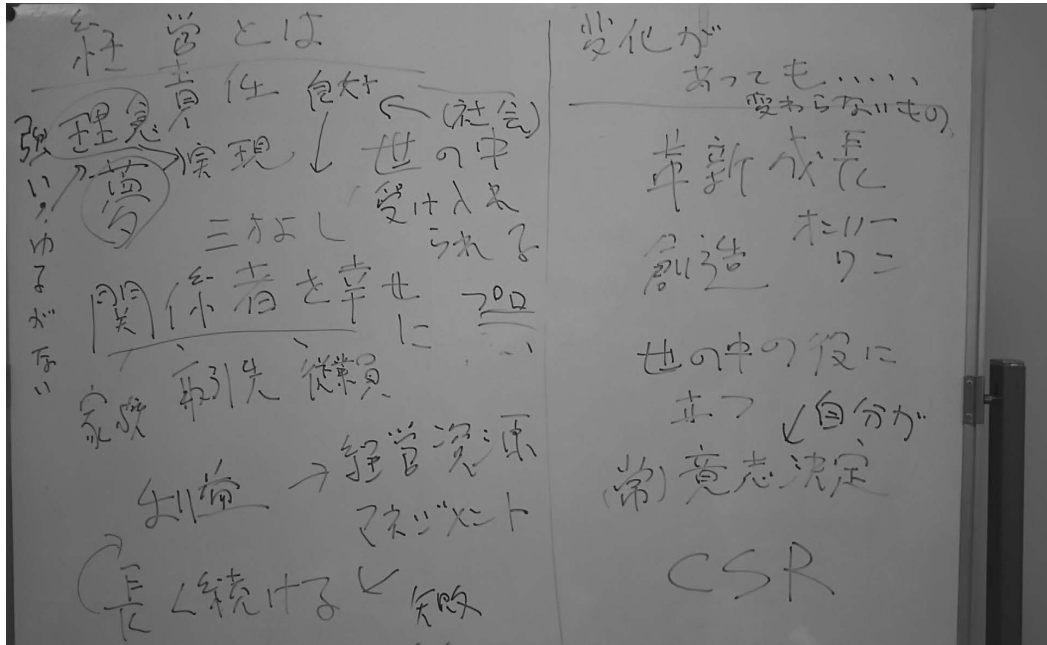 経営とは
責任
(社会)
理念
夢
実現
世の中
受け入れ
られる
強い!ゆるがない
三方よし
関係者を幸せ
に
プロ
家族 取引先 従業員
利益 → 経営資源
マネジメント
長く続ける
失敗
変化が
あっても……
変わらないもの
革新 成長
創造
オンリー
ワン
世の中の役に
立つ
自分が
(常)意志決定
CSR